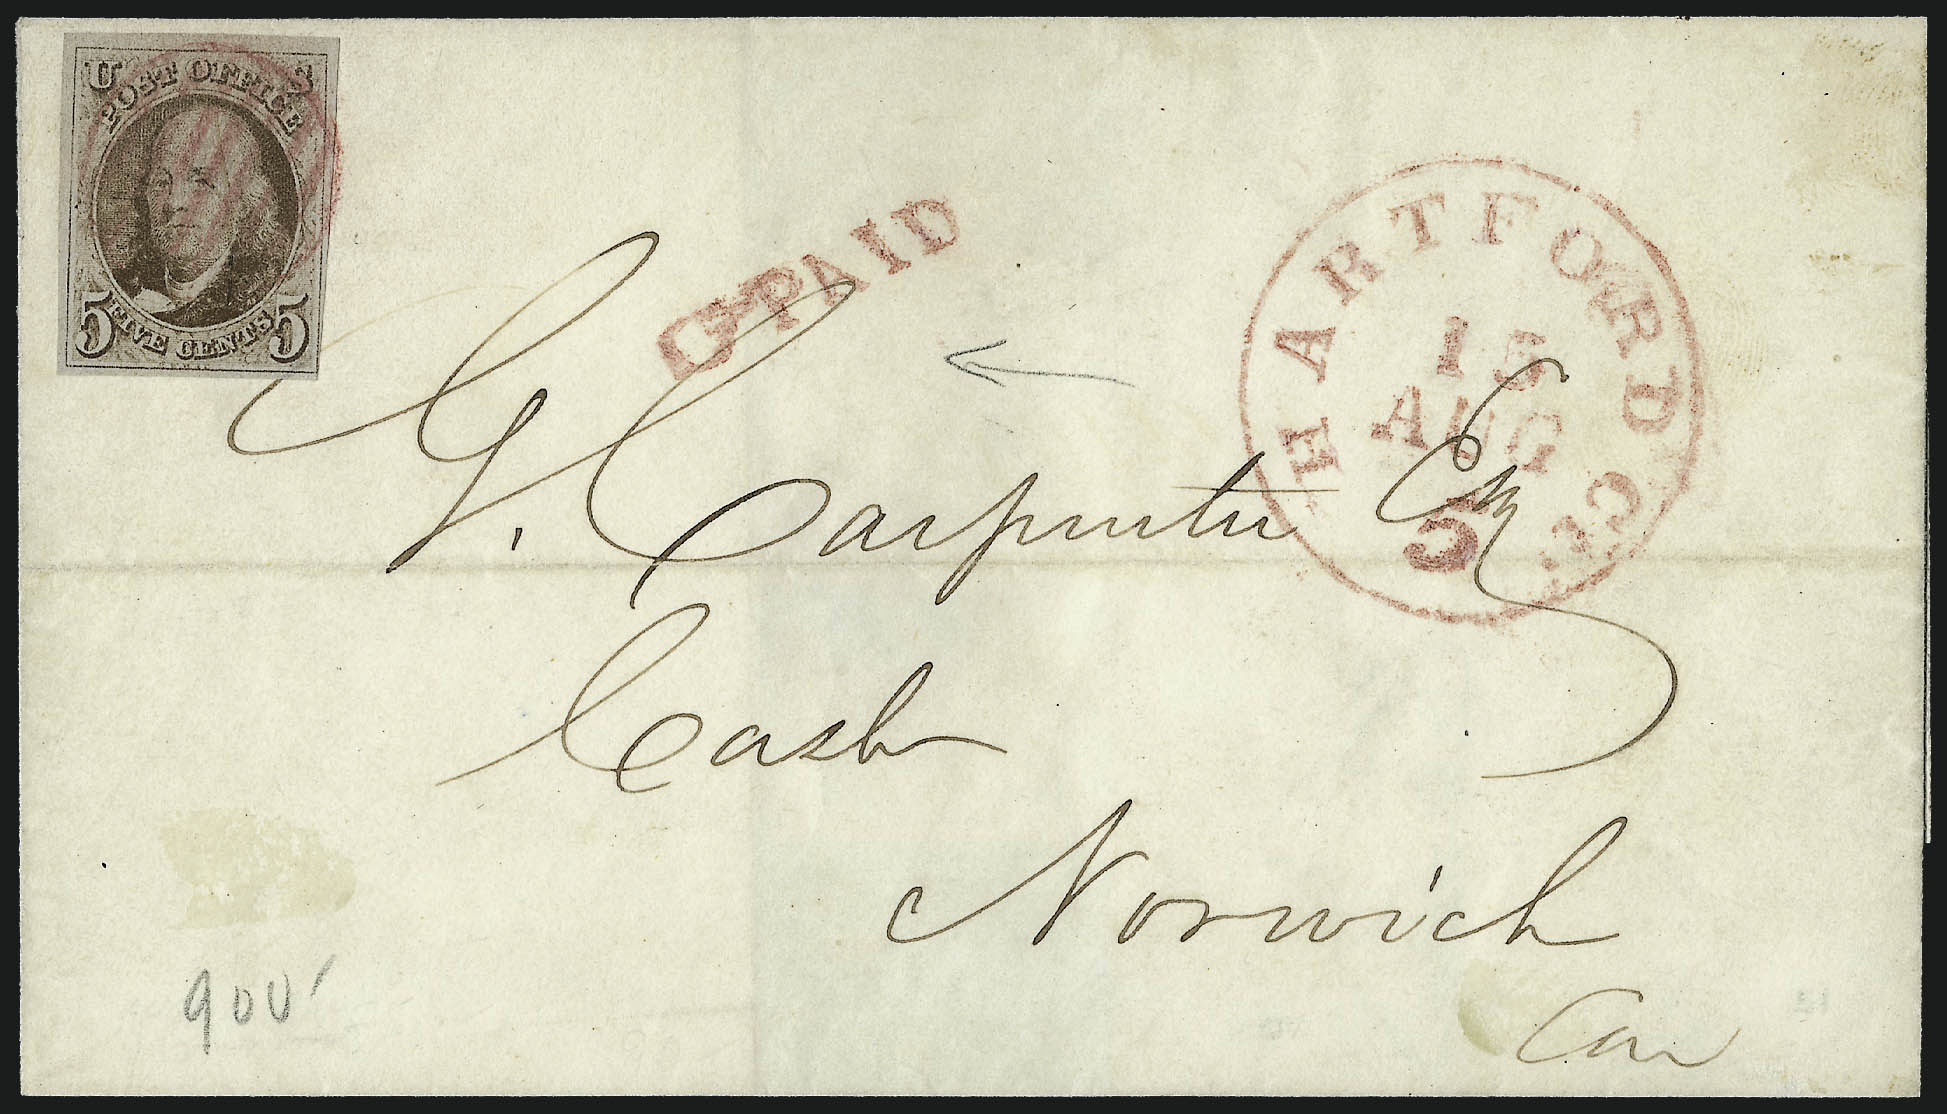 U S
POST OFFICE
5 FIVE CENTS 5
PAID
HARTFORD Ct.
15
AUG
5
G. Carpenter Esq
Cash
Norwich
Con
900'